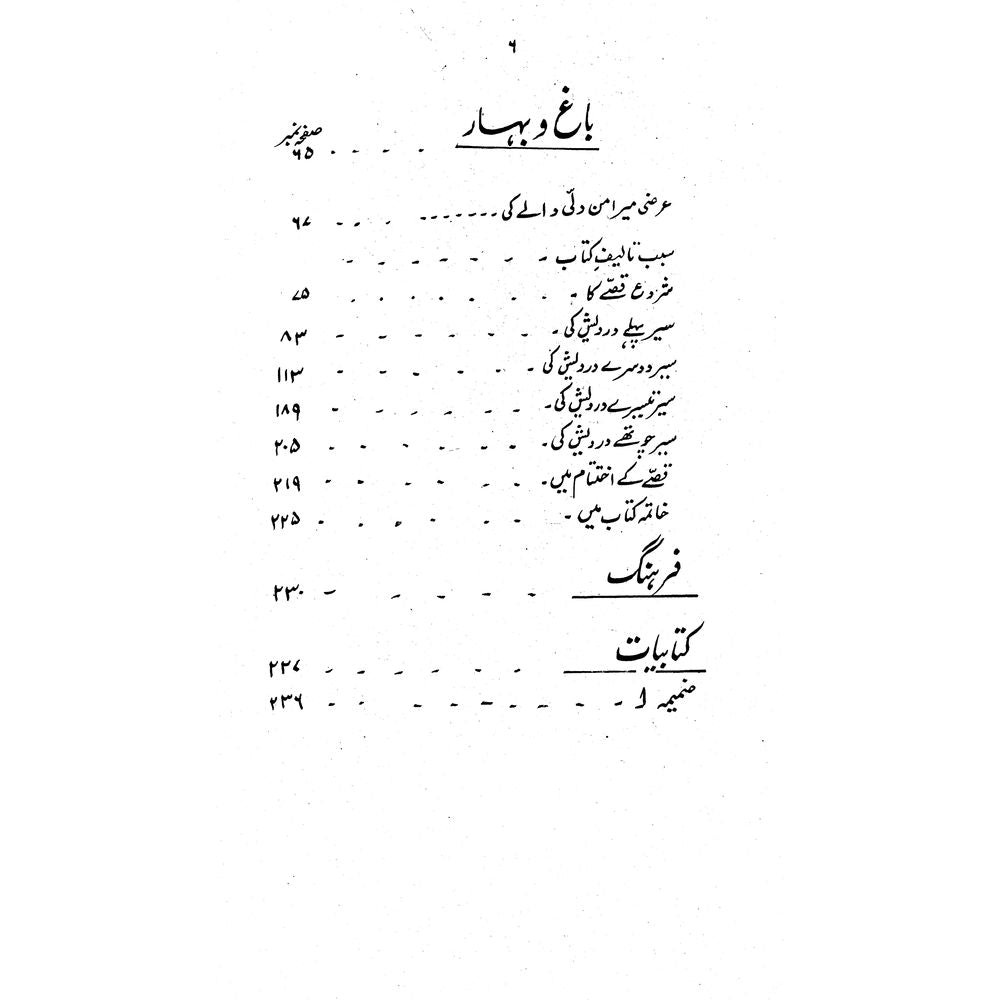 ۶
باغ و بہار
صفحہ نمبر
۶۵
عرضی میرامن دلّی والے کی ....... ۶۷
سبب تالیفِ کتاب
شروع قصّے کا ۷۵
سیر پہلے درویش کی ۸۳
سیر دوسرے درویش کی ۱۱۳
سیر تیسرے درویش کی ۱۸۹
سیر چوتھے درویش کی ۲۰۵
قصّے کے اختتام میں ۲۱۹
خاتمہ کتاب میں ۲۲۵
فرہنگ ۲۳۰
کتابیات ۲۲۷
ضمیمہ ا ۲۳۶